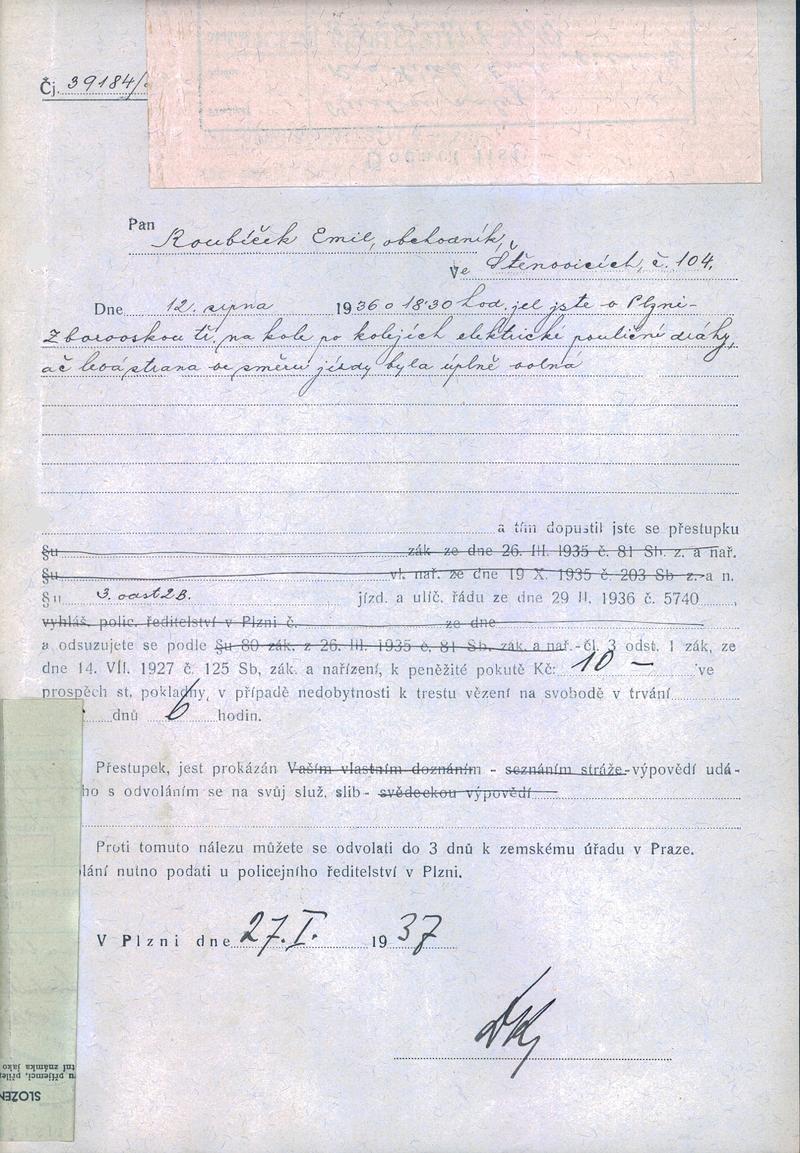 Čj. 39184/
Pan
Roubíček Emil, obchodník,
ve Štěnovicích, č. 104.
Dne 12. srpna 1936 o 18·30 hod. jel jste v Plzni-
Zborovskou tř. na kole po kolejích elektrické pouliční dráhy,
ač levá strana ve směru jízdy byla úplně volná
a tím dopustil jste se přestupku
§u zák ze dne 26. III. 1935 č. 81 Sb. z. a nař.
§u vl. nař. ze dne 19 X. 1935 č. 203 Sb z. a n.
§u 3. část 2B. jízd. a ulič. řádu ze dne 29 II. 1936 č. 5740 ,
vyhláš. polic. ředitelství v Plzni č. ze dne
a odsuzujete se podle §u 80 zák. z 26. III. 1935 č. 81 Sb. zák. a nař.-čl. 3 odst. 1 zák, ze
dne 14. VII. 1927 č. 125 Sb, zák. a nařízení, k peněžité pokutě Kč: 10 — ve
prospěch st. pokladny, v případě nedobytnosti k trestu vězení na svobodě v trvání
dnů 6 hodin.
Přestupek, jest prokázán Vaším vlastním doznáním - seznáním stráže-výpovědí udá-
ho s odvoláním se na svůj služ. slib - svědeckou výpovědí
Proti tomuto nálezu můžete se odvolati do 3 dnů k zemskému úřadu v Praze.
lání nutno podati u policejního ředitelství v Plzni.
V Plzni dne 27. I. 1937
SLOŽEN